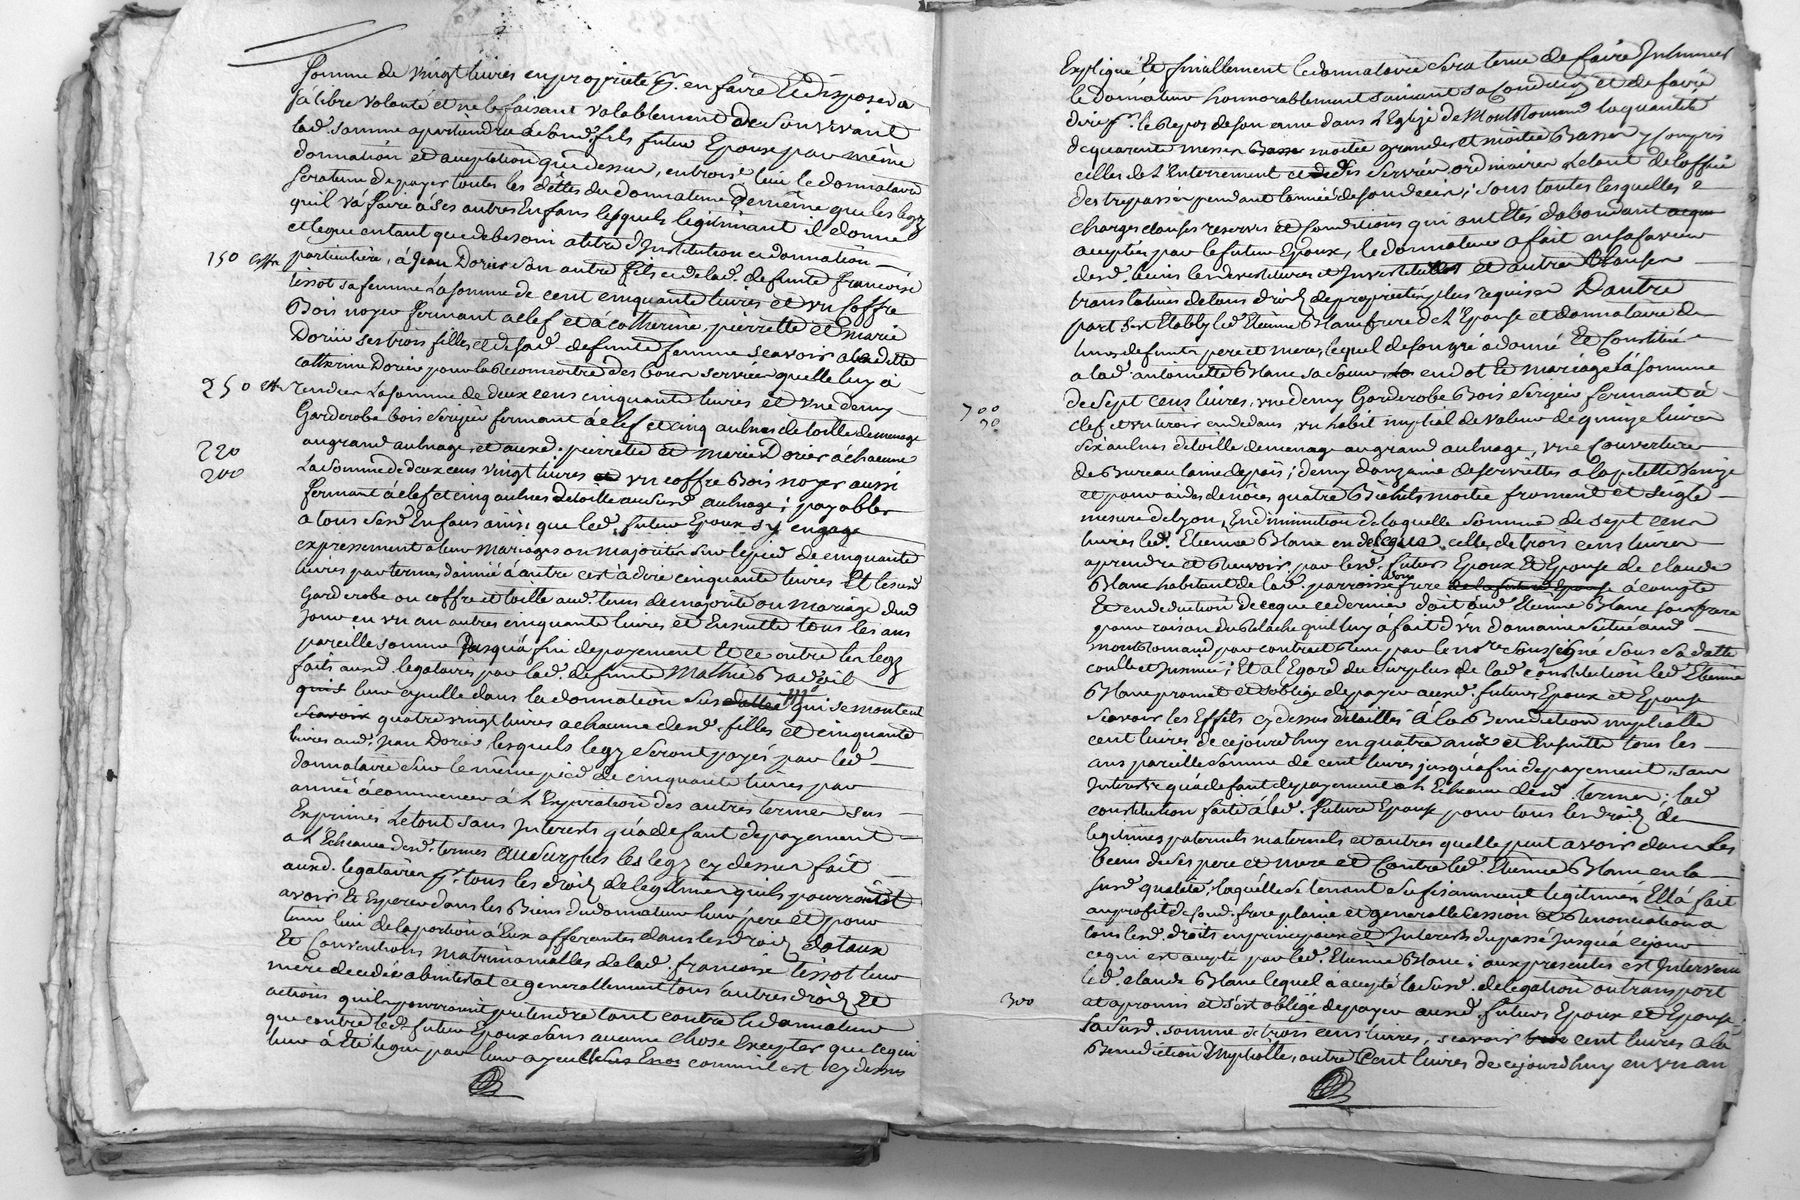 somme de vingt livres en propriete pr. en faire et disposer à
sa libre volonté et ne le faisant valablement de son vivant
lad. somme apartiendra aud. fils futur Epoux par même
donnation et aceptation que dessus, outre ce le donnataire
sera tenu de payer toutes les dettes du donnateur de même que les legz
qu'il va faire à ses autres Enfans lesquels legitimant il donne
et legue en tant que de besoin a titre d'Institution en donnation
150 coffre particuliere, à Jean Dorier son autre fils et de lad. defunte francoise
tissot sa femme la somme de cent cinquante livres et un coffre
Bois noyer fermant a clef et à catherine, pierrette et marie
Dorier ses trois filles et de sad. defunte femme scavoir a ladite
catherine Dorier pour la Reconnoitre des bons services quelle luy a
250 rendus la somme de deux cens cinquante livres et une demy
Garderobe bois Serizier fermant à clef et cinq aulnes de toille de menage
220 au grand aulnage, et auxd. pierrette et marie Dorier à chacune
200 la somme de deux cens vingt livres et un coffre Bois noyer aussi
fermant à clef et cinq aulnes de toille au susd. aulnage; payables
a tous sesd. Enfans ainsi que led. futur Epoux s'y engage
expressement a leur mariages ou majorités sur le pied de cinquante
livres par termes d'année à autre c'est à dire cinquante livres et lesd.
Garderobe ou coffre et toille aud. tems de majorité ou mariage dud.
jour en un an autres cinquante livres et Ensuitte tous les ans
pareille somme Jusqu'à fin de payement et ce outre les legz
faits auxd. legataires par lad. defunte Mathie Badoil
leur ayeulle dans la donnation susd. qui se montent
quatre vingt livres a chacune desd. filles et cinquante
livres aud. Jean Dorier lesquels legz seront payés par led.
donnataire sur le même pied de cinquante livres par
année à commencer à l'Expiration des autres termes sus
Exprimés le tout sans Interests qu'à defaut de payement
a l'Echeance desd. termes au surplus les legz cy dessus fait
auxd. legataires pr. tous les droits de legitimes quils pourroient
avoir et Esperer dans les Biens dud. donnateur leur pere et pour
leur lieu de la portion à Eux afferantes dans les droits dotaux
et Conventions matrimonialles de lad. francoise tissot leur
mere decedée abintestat et generallement tous autres droits et
actions quils pourroient pretendre tant contre le donnateur
que contre led. futur Epoux sans aucune chose Excepter que ce qui
leur à été legué par leur ayeulle comm'il est cy dessus
Expliqué et finallement le donnataire sera tenu de faire Inhumer
le donnateur honnorablement suivant sa condition et de faire
dire pr. le Repos de son ame dans l'Eglize de Montromand la quantité
de quarante messes moitié grandes et moitié Basses y compris
celles de l'Enterrement et des Services ordinaires le tout de l'office
des trepassés pendant l'année de son deces; sous toutes lesquelles
charges clauses reserves et conditions qui ont Etés d'abondant
aceptées par le futur Epoux, le donnateur a fait en sa faveur
desd. biens les devestitures et Investitures et autres Clauses
translatives de tous droits de propriete plus requises D'autre
part s'est Etably led. Etienne Blanc frere de l'Epouse et donnataire de
leurs defunts pere et mere, lequel de son gré a donné et Constitué
a lad. antoinette Blanc sa soeur en dot et mariage la somme
700 de Sept cens livres, une demy Garderobe Bois Serizier fermant à
clef et un tiroir en dedans, un habit nuptial de valeur de quinze livres
six aulnes de toille de menage au grand aulnage, une Couverture
de Bureau laine de païs; demy douzaine de serviettes a la petite Venize
et pour aides de nôces quatre Bichets moitié froment et seigle
mesure de Lyon, En diminution de laquelle somme de sept cens
livres led. Etienne Blanc en delegue celle de trois cens livres
a prendre et Recevoir, par lesd. futurs Epoux et Epouse de claude
Blanc habitant de lad. parroisse son frere à compte
Et en deduction de ce que ce dernier doit aud. Etienne Blanc son frere
pour raison du Relache quil luy à fait d'un domaine situé aud.
montromand par contract Reçu par le nore. soussigné sous sa datte
controllé et Insinué; Et al'Egard du surplus de lad. constitution led. Etienne
Blanc promet et s'oblige de payer auxd. futurs Epoux et Epouse
scavoir les Effets cy dessus detaillés à la Benediction nuptialle
cent livres de cejourd'huy en quatre ans et Ensuitte tous les
ans pareille somme de cent livres jusqu'à fin de payement, sans
Interests qu'à defaut de payement a l'Echeance desd. termes; lad.
constitution faite à lad. future Epouse pour tous les droits de
legitimes paternels maternels et autres quelle peut avoir dans les
biens de ses pere et mere et Contre led. Etienne Blanc en la
susd. qualité, laquelle se tenant sufisamment legitimée Ell'à fait
au profit de sond. frere plaine et generalle Cession et Renonciation a
tous lesd. droits en principaux et Interests du passé Jusqu'à ce jour
ce qui est acepté par led. Etienne Blanc; aux presentes est Intervenu
led. claude Blanc lequel à acepté la susd. delegation ou transport
300 et a promis et s'est obligé de payer auxd. futurs Epoux et Epouse
la susd. somme de trois cens livres, scavoir cent livres a la
Benediction Nuptialle, autre Cent livres de cejourd'huy en un an